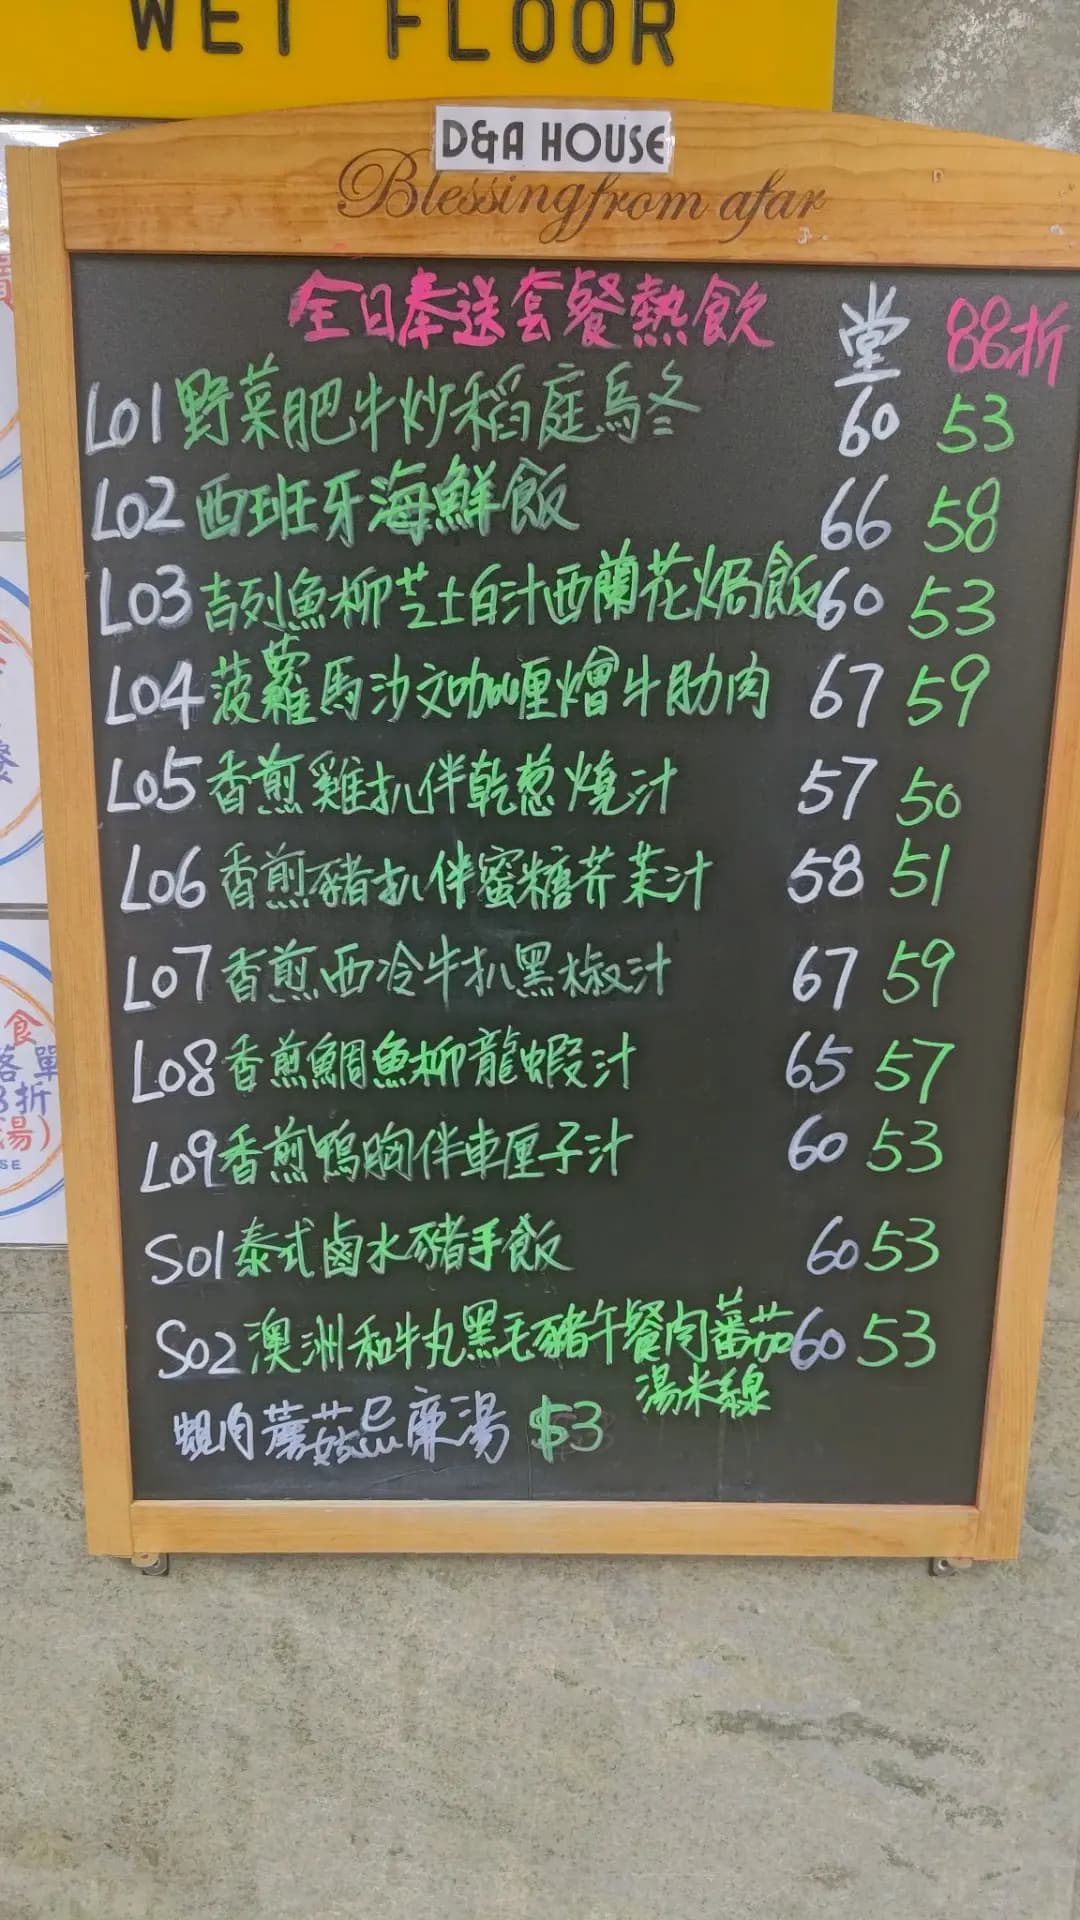 WET FLOOR
D&A HOUSE
Blessing from afar
全日奉送套餐熱飲 堂 88折
L01 野菜肥牛炒稻庭烏冬 60 53
L02 西班牙海鮮飯 66 58
L03 吉列魚柳芝士白汁西蘭花焗飯 60 53
L04 菠蘿馬沙文咖喱燴牛肋肉 67 59
L05 香煎雞扒伴乾葱燒汁 57 50
L06 香煎豬扒伴蜜糖芥茉汁 58 51
L07 香煎西冷牛扒黑椒汁 67 59
L08 香煎鯛魚柳龍蝦汁 65 57
L09 香煎鴨胸伴車厘子汁 60 53
S01 泰式鹵水豬手飯 60 53
S02 澳洲和牛丸黑毛豬午餐肉蕃茄 60 53
湯米線
蜆肉蘑菇忌廉湯 $3
食
落單
8折
湯)
SE